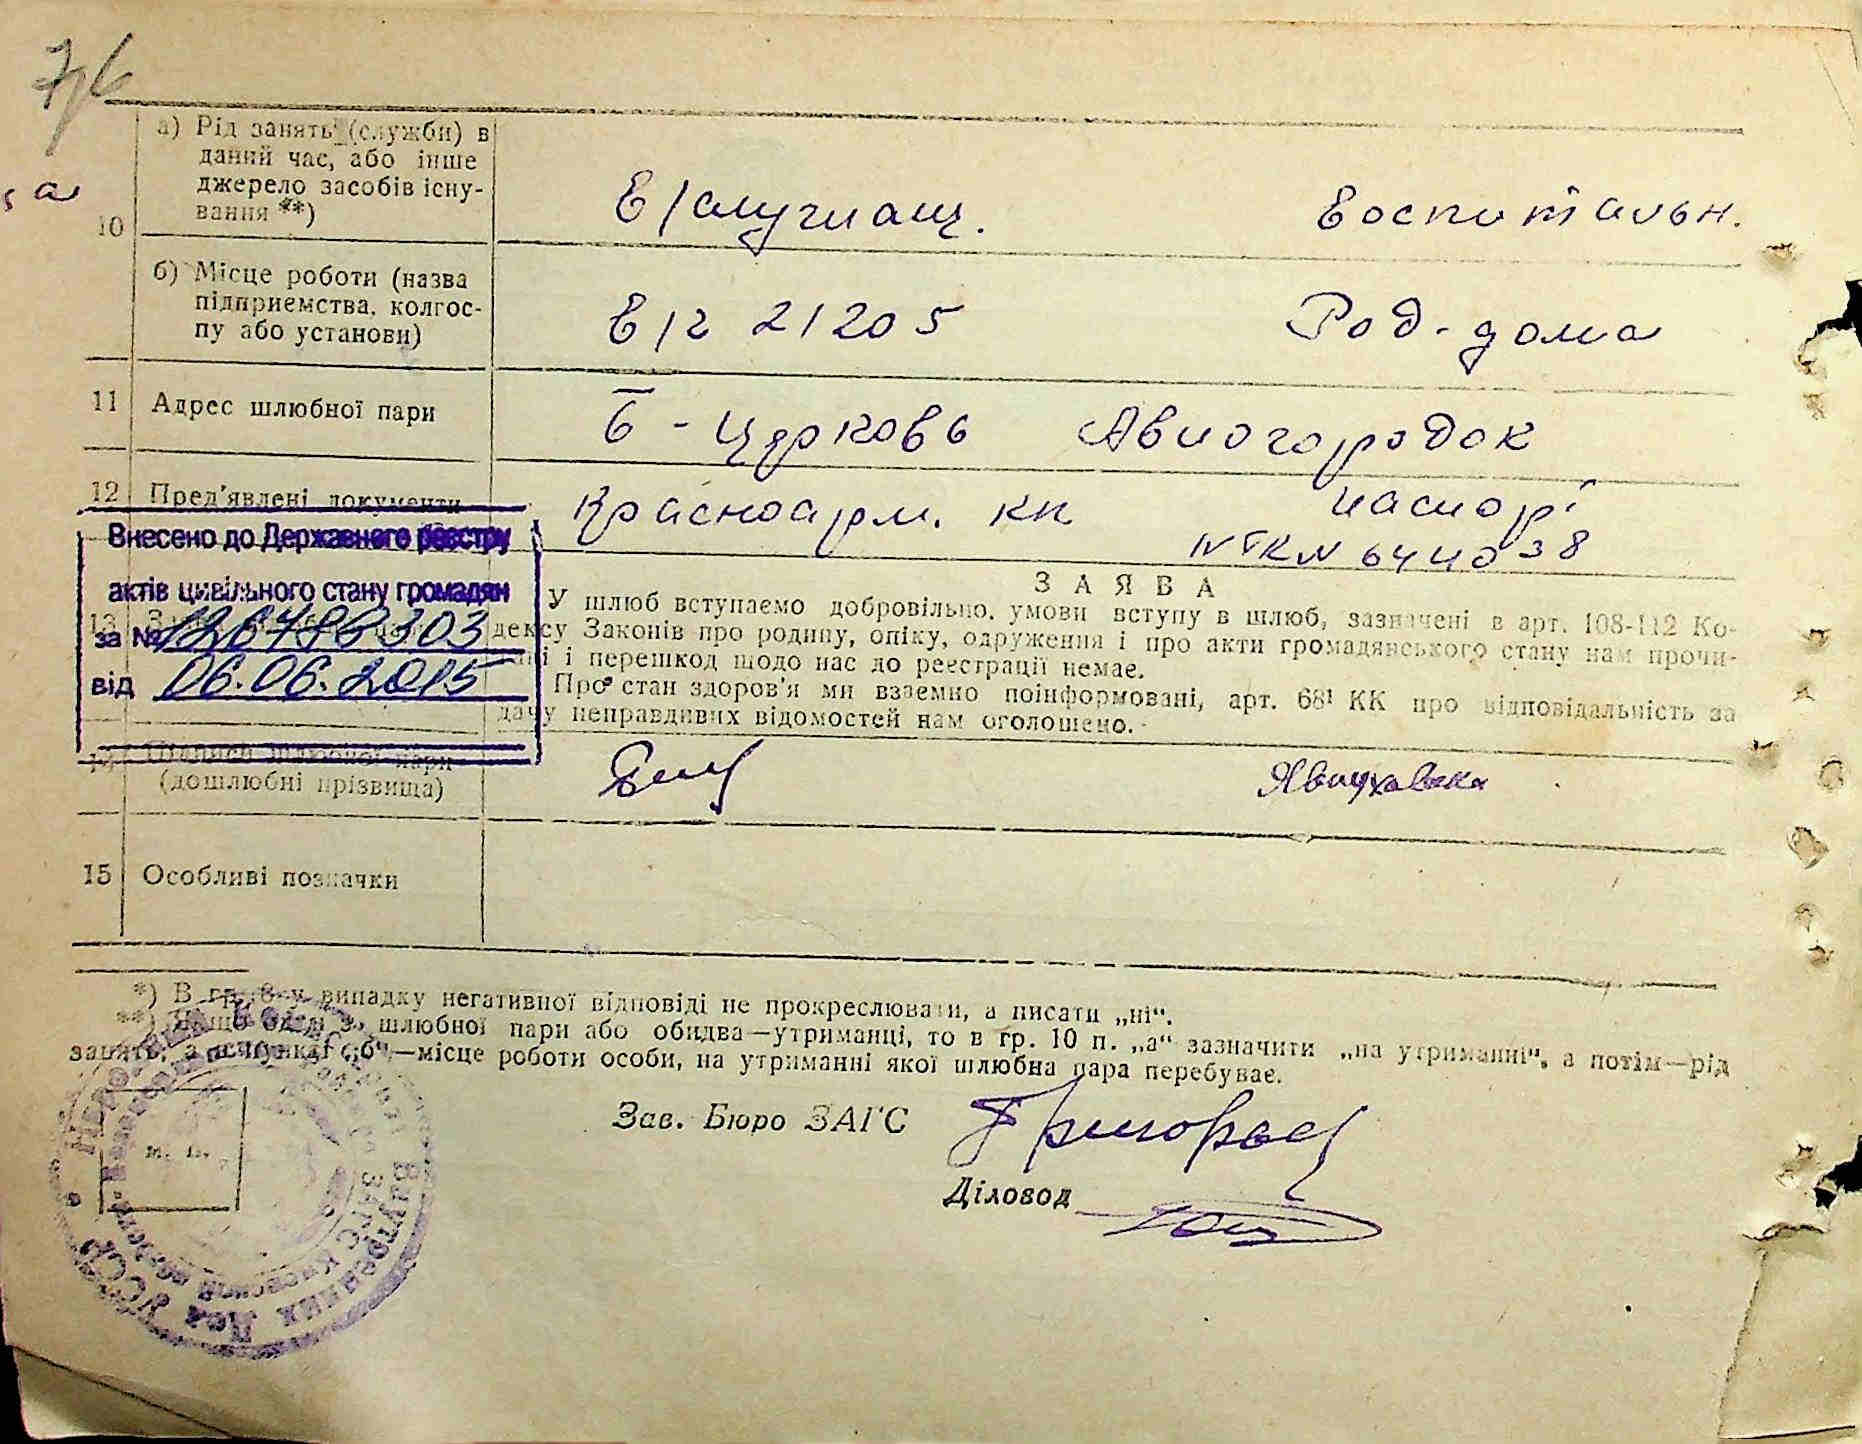 а) Рід занять (служби) в
даний час, або інше
джерело засобів існу-
вання **)
10
В/служащ.
Воспитальн.
б) Місце роботи (назва
підприємства, колгос-
пу або установи)
В/г 21205
Род-дома
11 Адрес шлюбної пари
Б-Церковь Авиогородок
12 Пред'явлені документи
Красноарм. кн
паспорт
Внесено до Державного реєстру
актів цивільного стану громадян
за №
від 06.06.2015
13
ЗАЯВА
У шлюб вступаємо добровільно, умови вступу в шлюб, зазначені в арт. 108-112 Ко-
дексу Законів про родину, опіку, одруження і про акти громадянського стану нам прочи-
тані і перешкод щодо нас до реєстрації немає.
Про стан здоров'я ми взаємно поінформовані, арт. 68¹ КК про відповідальність за
дачу неправдивих відомостей нам оголошено.
14 Підписи шлюбної пари
(дошлюбні прізвища)
15 Особливі позначки
*) В гр. 8 у випадку негативної відповіді не прокреслювати, а писати „ні“.
**) Якщо один з шлюбної пари або обидва—утриманці, то в гр. 10 п. „а“ зазначити „на утриманні“, а потім—рід
занять, а в пункті „б“—місце роботи особи, на утриманні якої шлюбна пара перебуває.
М. П.
Зав. Бюро ЗАГС
Діловод
Внутренних Дел УССР
ЗАГС Киевской